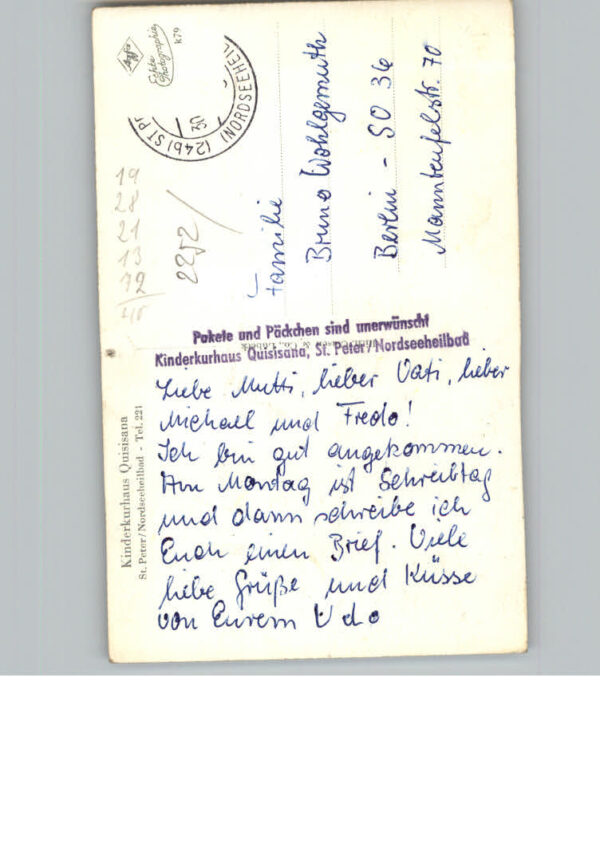 Kinderkurhaus Quisisana
St. Peter/Nordseeheilbad - Tel. 221
Pakete und Päckchen sind unerwünscht
Kinderkurhaus Quisisana, St. Peter/Nordseeheilbad
Liebe Mutti, lieber Vati, lieber
Michael und Fredo!
Ich bin gut angekommen.
Am Montag ist Schreibtag
und dann schreibe ich
Euch einen Brief. Viele
liebe Grüße und Küsse
von Eurem Udo
Familie
Bruno Wohlgemuth
Berlin - SO 36
Manteufelstr. 70
Agfa
Echte
Photographie
K79
(24b) ST. P
(NORDSEEHEIL
19
28
21
13
72
2252/